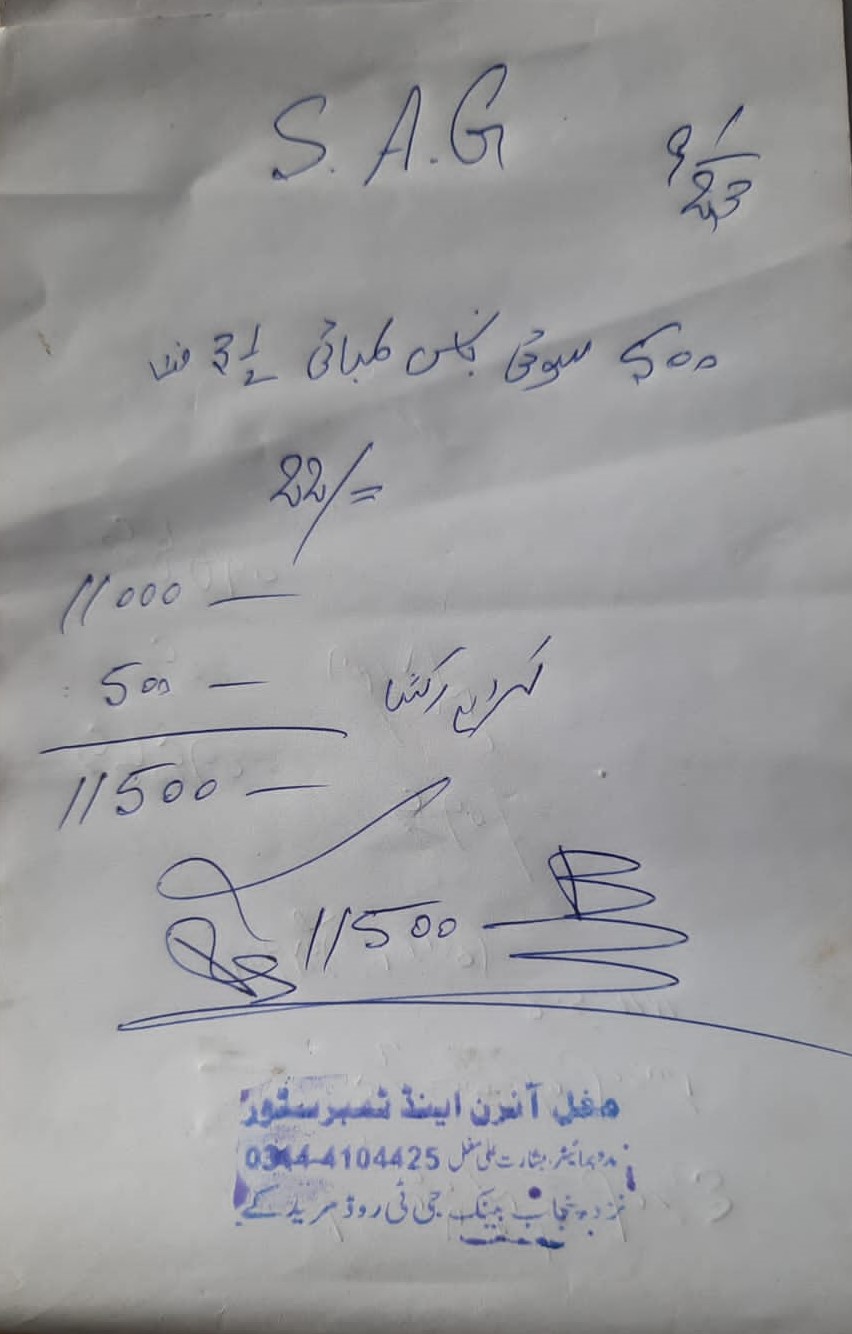 S. A. G
9 1/23
500 سوتی بکس لمبائی 3 1/2 فٹ
22/=
11000 —
500 — کرایہ رکشہ
11500 —
Rs 11500 —
مغل آئرن اینڈ ٹمبر سٹور
پروپرائیٹر بشارت علی مغل 0344-4104425
نزد پنجاب بینک جی ٹی روڈ مریدکے